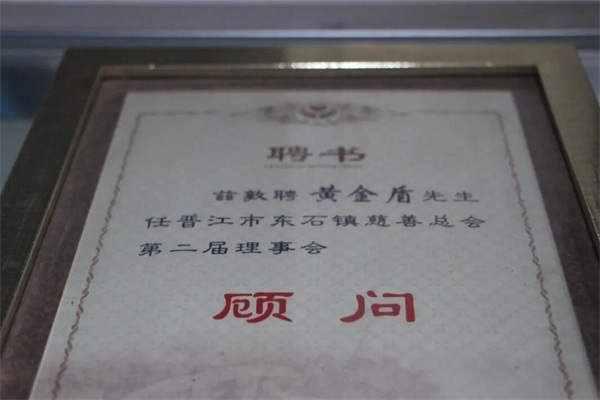 聘书
兹敦聘黄金盾先生
任晋江市东石镇慈善总会
第二届理事会
顾问